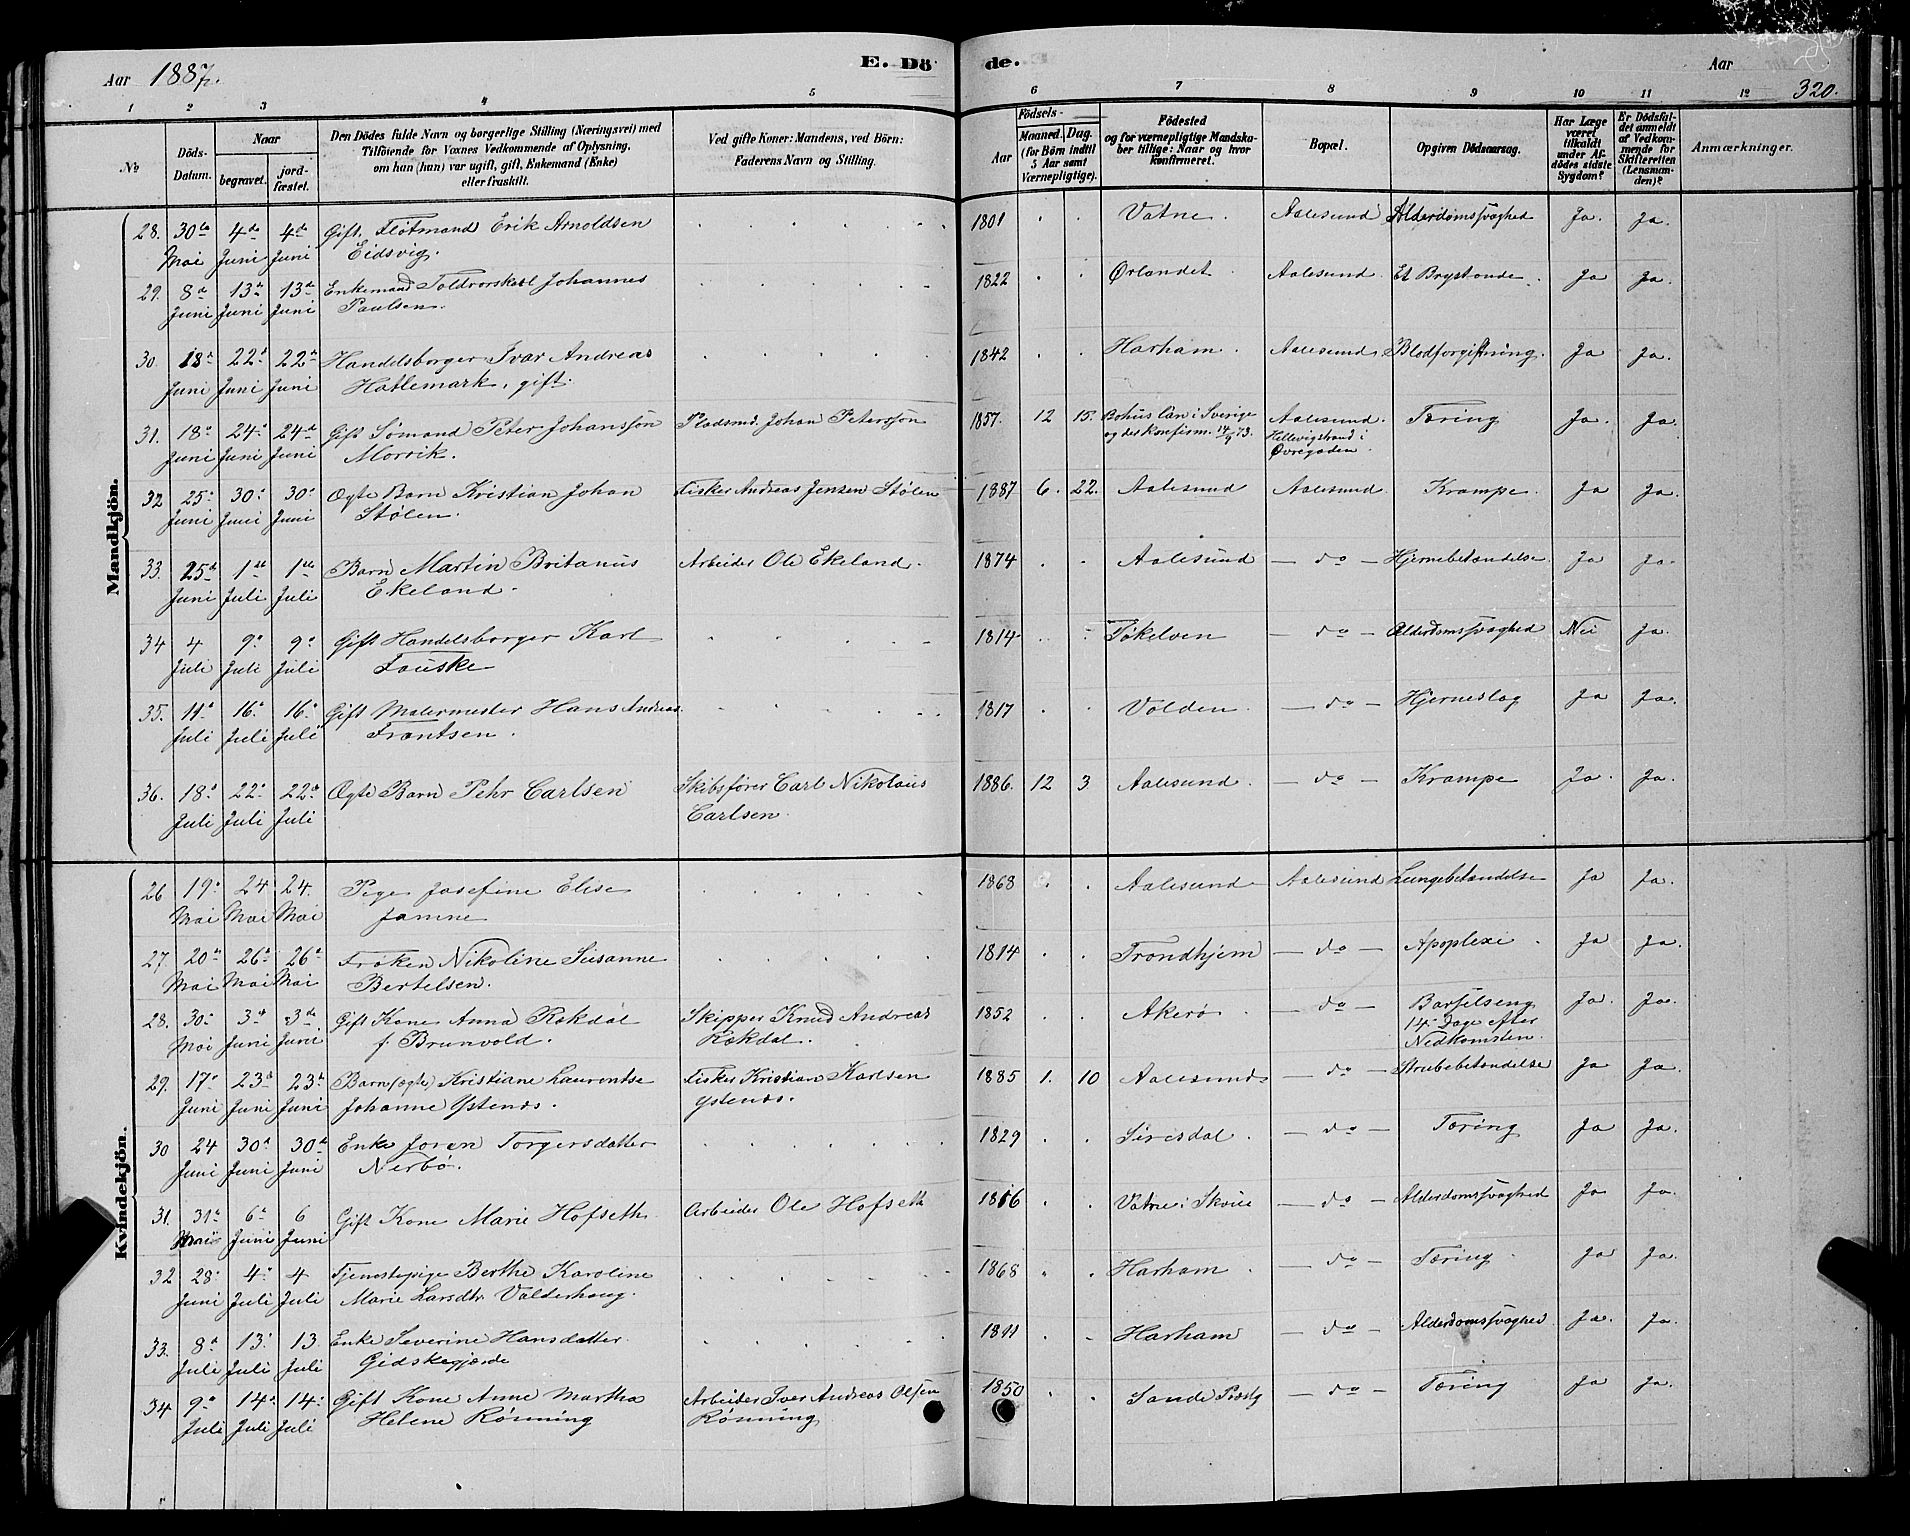 Aar 1887. E. Dö de. Aar 320.
1 2 3 4 5 6 7 8 9 10 11 12
No Döds-Datum. Naar begravet. jord-fæstet. Den Dödes fulde Navn og borgerlige Stilling (Næringsvei) med Tilföiende for Voxnes Vedkommende af Oplysning, om han (hun) var ugift, gift, Enkemand (Enke) eller fraskilt. Ved gifte Koner: Mandens, ved Börn: Faderens Navn og Stilling. Födsels- Aar Maaned. Dag. (for Börn indtil 5 Aar samt Værnepligtige). Födested og for værnepligtige Mandskaber tillige: Naar og hvor konfirmeret. Bopæl. Opgiven Dödsaarsag. Har Læge været tilkaldt under Afdödes sidste Sygdom? Er Dödsfaldet anmeldt af Vedkommende for Skifteretten (Lensmanden)? Anmærkninger.
Mandkjön.
28. 30te 4de 4de Gift. Fløtmand Erik Arnoldsen 1801 Vatne. Aalesund Alderdomssvaghed Ja. Ja.
Mai Juni Juni Eidsvig.
29. 8de 13de 13de Enkemand Toldrorskarl Johannes 1822 Ørlandet Aalesund. Et Brystonde. Ja Ja.
Juni Juni Juni Paulsen.
30. 18de 22de 22de Handelsborger Ivar Andreas 1842 Harham. Aalesund Blodforgiftning. Ja Ja.
Juni Juni Juni Hatlemark, gift.
31. 18de 24de 24de Gift Sømand Peter Johansson Pladsmd. Johan Petersson 1857. 12 15. Bohus Län i Sverige Aalesund. Tæring Ja. Ja.
Juni Juni Juni Morvik. og der konfirm. 14/9 73. Hellevigstrand i
Øvregaden.
32 25de 30de 30de Ægte Barn Kristian Johan Fisker Andreas Jensen Stølen 1887 6. 22. Aalesund Aalesund. Krampe. Ja Ja.
Juni Juni Juni Stølen.
33. 25de 1ste 1ste Barn Martin Britanus Arbeider Ole Ekeland. 1874 Aalesund — do — Hjernebetændelse Ja Ja.
Juni Juli Juli Ekeland.
34 4 9de 9de Gift Handelsborger Karl 1814 Tøkelven — do — Alderdomssvaghed Nei Ja.
Juli Juli Juli Fauske
35. 11de 16de 16de Gift Malermester Hans Andreas 1817 Volden. — do — Hjerneslag Ja Ja.
Juli Juli Juli Frantsen.
36. 18de 22de 22de Ægte Barn Pehr Carlsen Skibsfører Carl Nikolaus 1886. 12 3 Aalesund. — do — Krampe Ja. Ja.
Juli Juli Juli Carlsen.
Kvindekjön.
26 19de 24 24 Pige Josefine Elise 1868 Aalesund Aalesund Lungebetændelse Ja Ja.
Mai Mai Mai Jamne
27. 20de 26de 26de Frøken Nikoline Susanne 1814 Trondhjem — do — Apoplexi. Ja Ja.
Mai Mai Mai Bertelsen.
28. 30te 3de 3de Gift Kone Anna Rokdal Skipper Knud Andreas 1852 Akerø. — do — Barselseng Ja. Ja.
Mai Juni Juni f. Brunvold. Rokdal. 14 Dage efter
Nedkomsten.
29. 17de 23de 23de Barn (ægte) Kristiane Laurentse Fisker Kristian Karlsen 1885 1. 10 Aalesund — do — Strubebetændelse Ja Ja.
Juni Juni Juni Johanne Ystenæs. Ystenæs.
30 24 30de 30de Enke Joren Torgersdatter 1829 Siresdal. — do — Tæring Ja Ja.
Juni Juni Juni Nerbø.
31. 31te 6te 6 Gift Kone Marie Hofseth Arbeider Ole Hofseth 1816 Vatne i Skoue — do — Alderdomssvaghed Ja Ja.
Mai Juni Juni
32 28de 4de 4 Tjenestepige Berthe Karoline 1868 Harham. — do — Tæring. Ja Ja.
Juni Juli Juli Marie Larsdtr. Valderhaug.
33. 8de 13de 13. Enke Severine Hansdatter 1811 Harham — do — Alderdomssvaghed. Ja. Ja.
Juli Juli Juli Gidskegjerde
34 9de 14de 14de Gift Kone Anne Martha Arbeider Iver Andreas Olsen 1850 Sande Præstg — do — Tæring Ja Ja.
Juli Juli Juli Helene Rönning Rönning